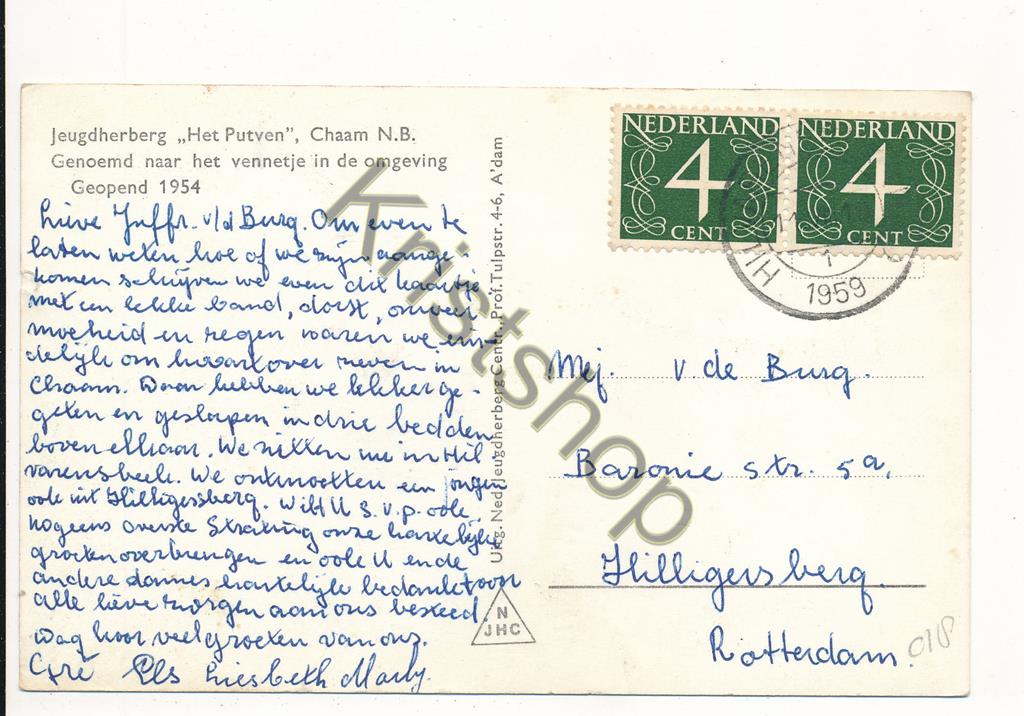 Jeugdherberg „Het Putven”, Chaam N.B.
Genoemd naar het vennetje in de omgeving
Geopend 1954
Lieve Juffr. v/d Burg. Om even te
laten weten hoe of we zijn aange-
komen schrijven we even dit kaartje
met een lekke band, dorst, onweer
moeheid en regen waren we ein-
delijk om kwart over zeven in
Chaam. Daar hebben we lekker ge-
geten en geslapen in drie bedden
boven elkaar. We zitten nu in Hil-
varenbeek. We ontmoetten een jongen
ook uit Hilligersberg. Wilt U s.v.p. ook
nog eens overste Straking onze hartelijke
groeten overbrengen en ook U en de
andere dames hartelijk bedankt voor
alle lieve zorgen aan ons besteed.
Dag hoor veel groeten van ons.
Gré Els Liesbeth Marly.
Uitg. Ned. Jeugdherberg Centr., Prof. Tulpstr. 4-6, A'dam
N
JHC
NEDERLAND
4
CENT
NEDERLAND
4
CENT
1
1959
Mej. v de Burg.
Baronie str. 5a,
Hilligersberg.
Rotterdam.
018
Kristshop